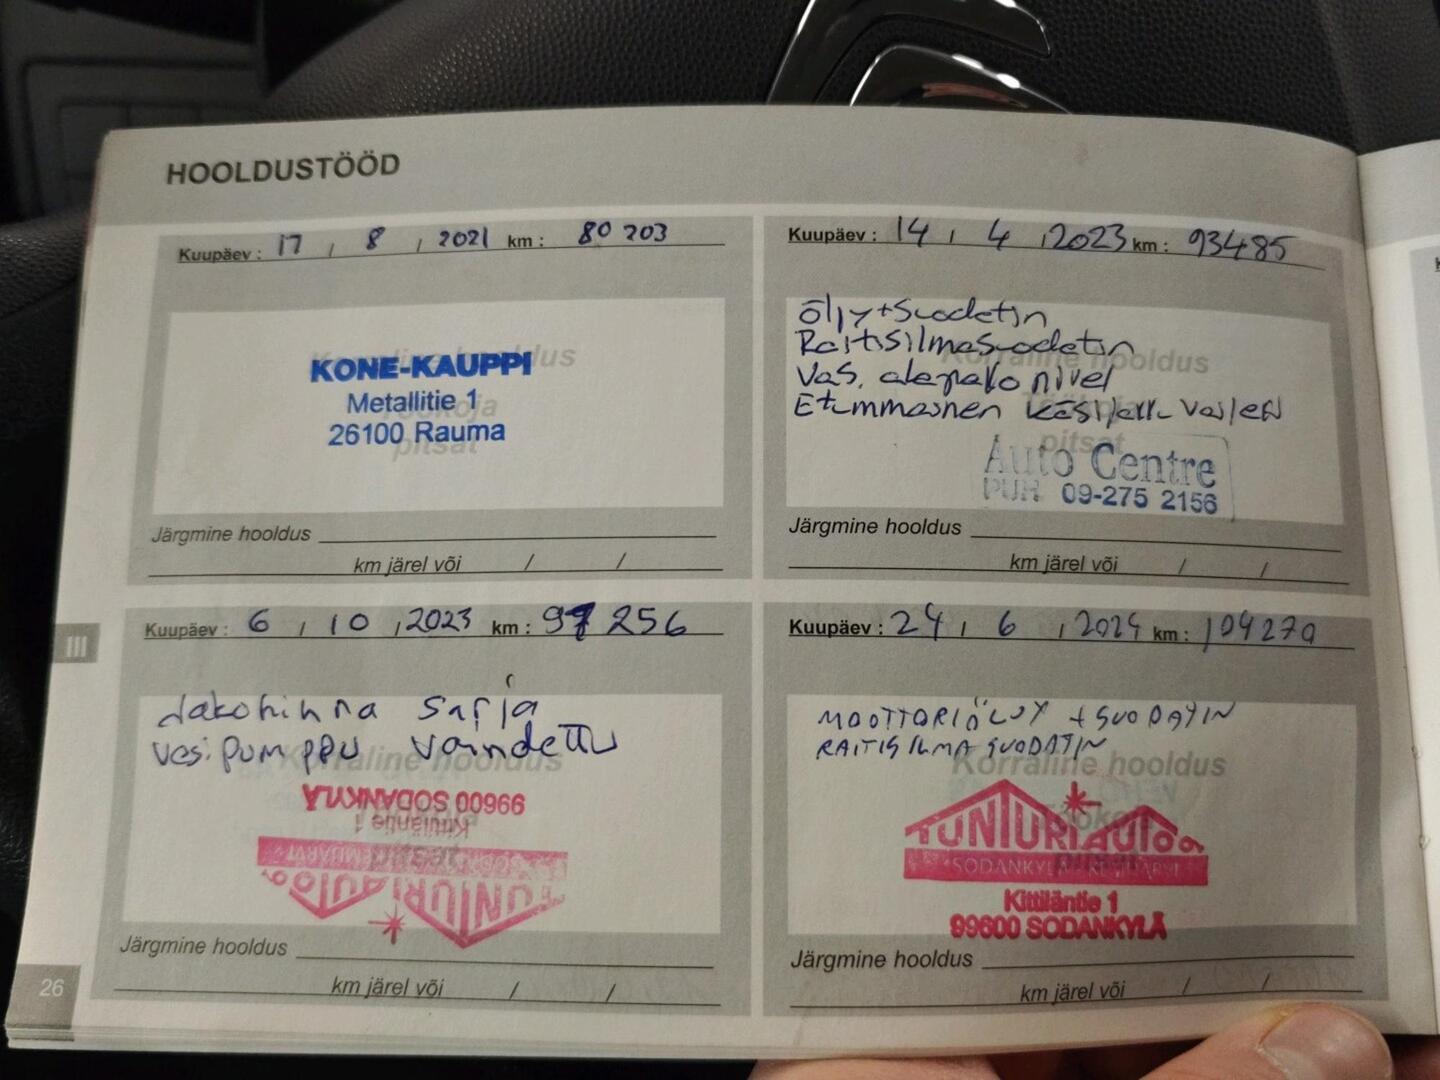 HOOLDUSTÖÖD
Kuupäev : 17 / 8 / 2021 km : 80 203
Korraline hooldus
Töökoja
pitsat
KONE-KAUPPI
Metallitie 1
26100 Rauma
Järgmine hooldus
km järel või / /
Kuupäev : 14 / 4 / 2023 km : 93485
Öljy+Suodatin
Raitisilmasuodatin
Korraline hooldus
Vas. alapallo nivel
Etummainen käsijarru vaijeri
pitsat
Auto Centre
PUH. 09-275 2156
Järgmine hooldus
km järel või / /
Kuupäev : 6 / 10 / 2023 km : 97 256
Jakohihna sarja
vesipumppu vaihdettu
Korraline hooldus
99600 SODANKYLÄ
Kittiläntie 1
TUNTURIAUTO
Järgmine hooldus
km järel või / /
Kuupäev : 24 / 6 / 2024 km : 104270
MOOTTORIÖLJY + SUODATIN
RAITISILMASUODATIN
Korraline hooldus
TUNTURIAUTO
SODANKYLÄ - KEMIJÄRVI
Kittiläntie 1
99600 SODANKYLÄ
Järgmine hooldus
km järel või / /
III
26